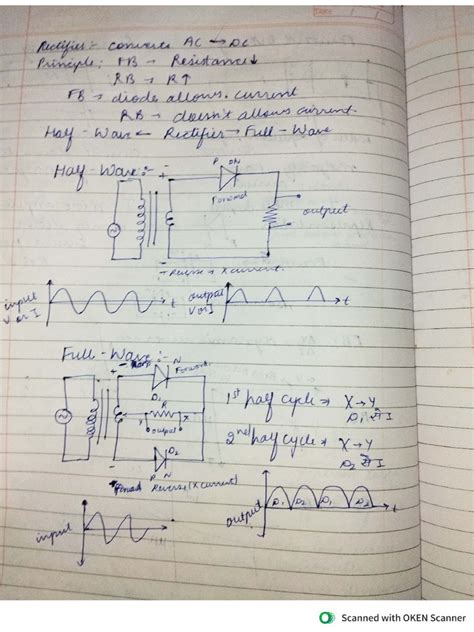 Rectifier:- converts AC → DC
Principle: FB → Resistance↓
RB → R↑
FB → diode allows current
RB → doesn't allows current.
Half-Wave ← Rectifier → Full-Wave
Half-Wave:-
- + P N
Forward
output
input V or I
t
output V or I
t
- Reverse → X current.
Full-Wave:-
- + P N
Forward
D1
R
X Y
output
D2
P N
Reverse (X current)
1st half cycle ⇒ X→Y
D1 I
2nd half cycle ⇒ X→Y
D2 I
input
output
D1 D2 D1 D2
t
Scanned with OKEN Scanner